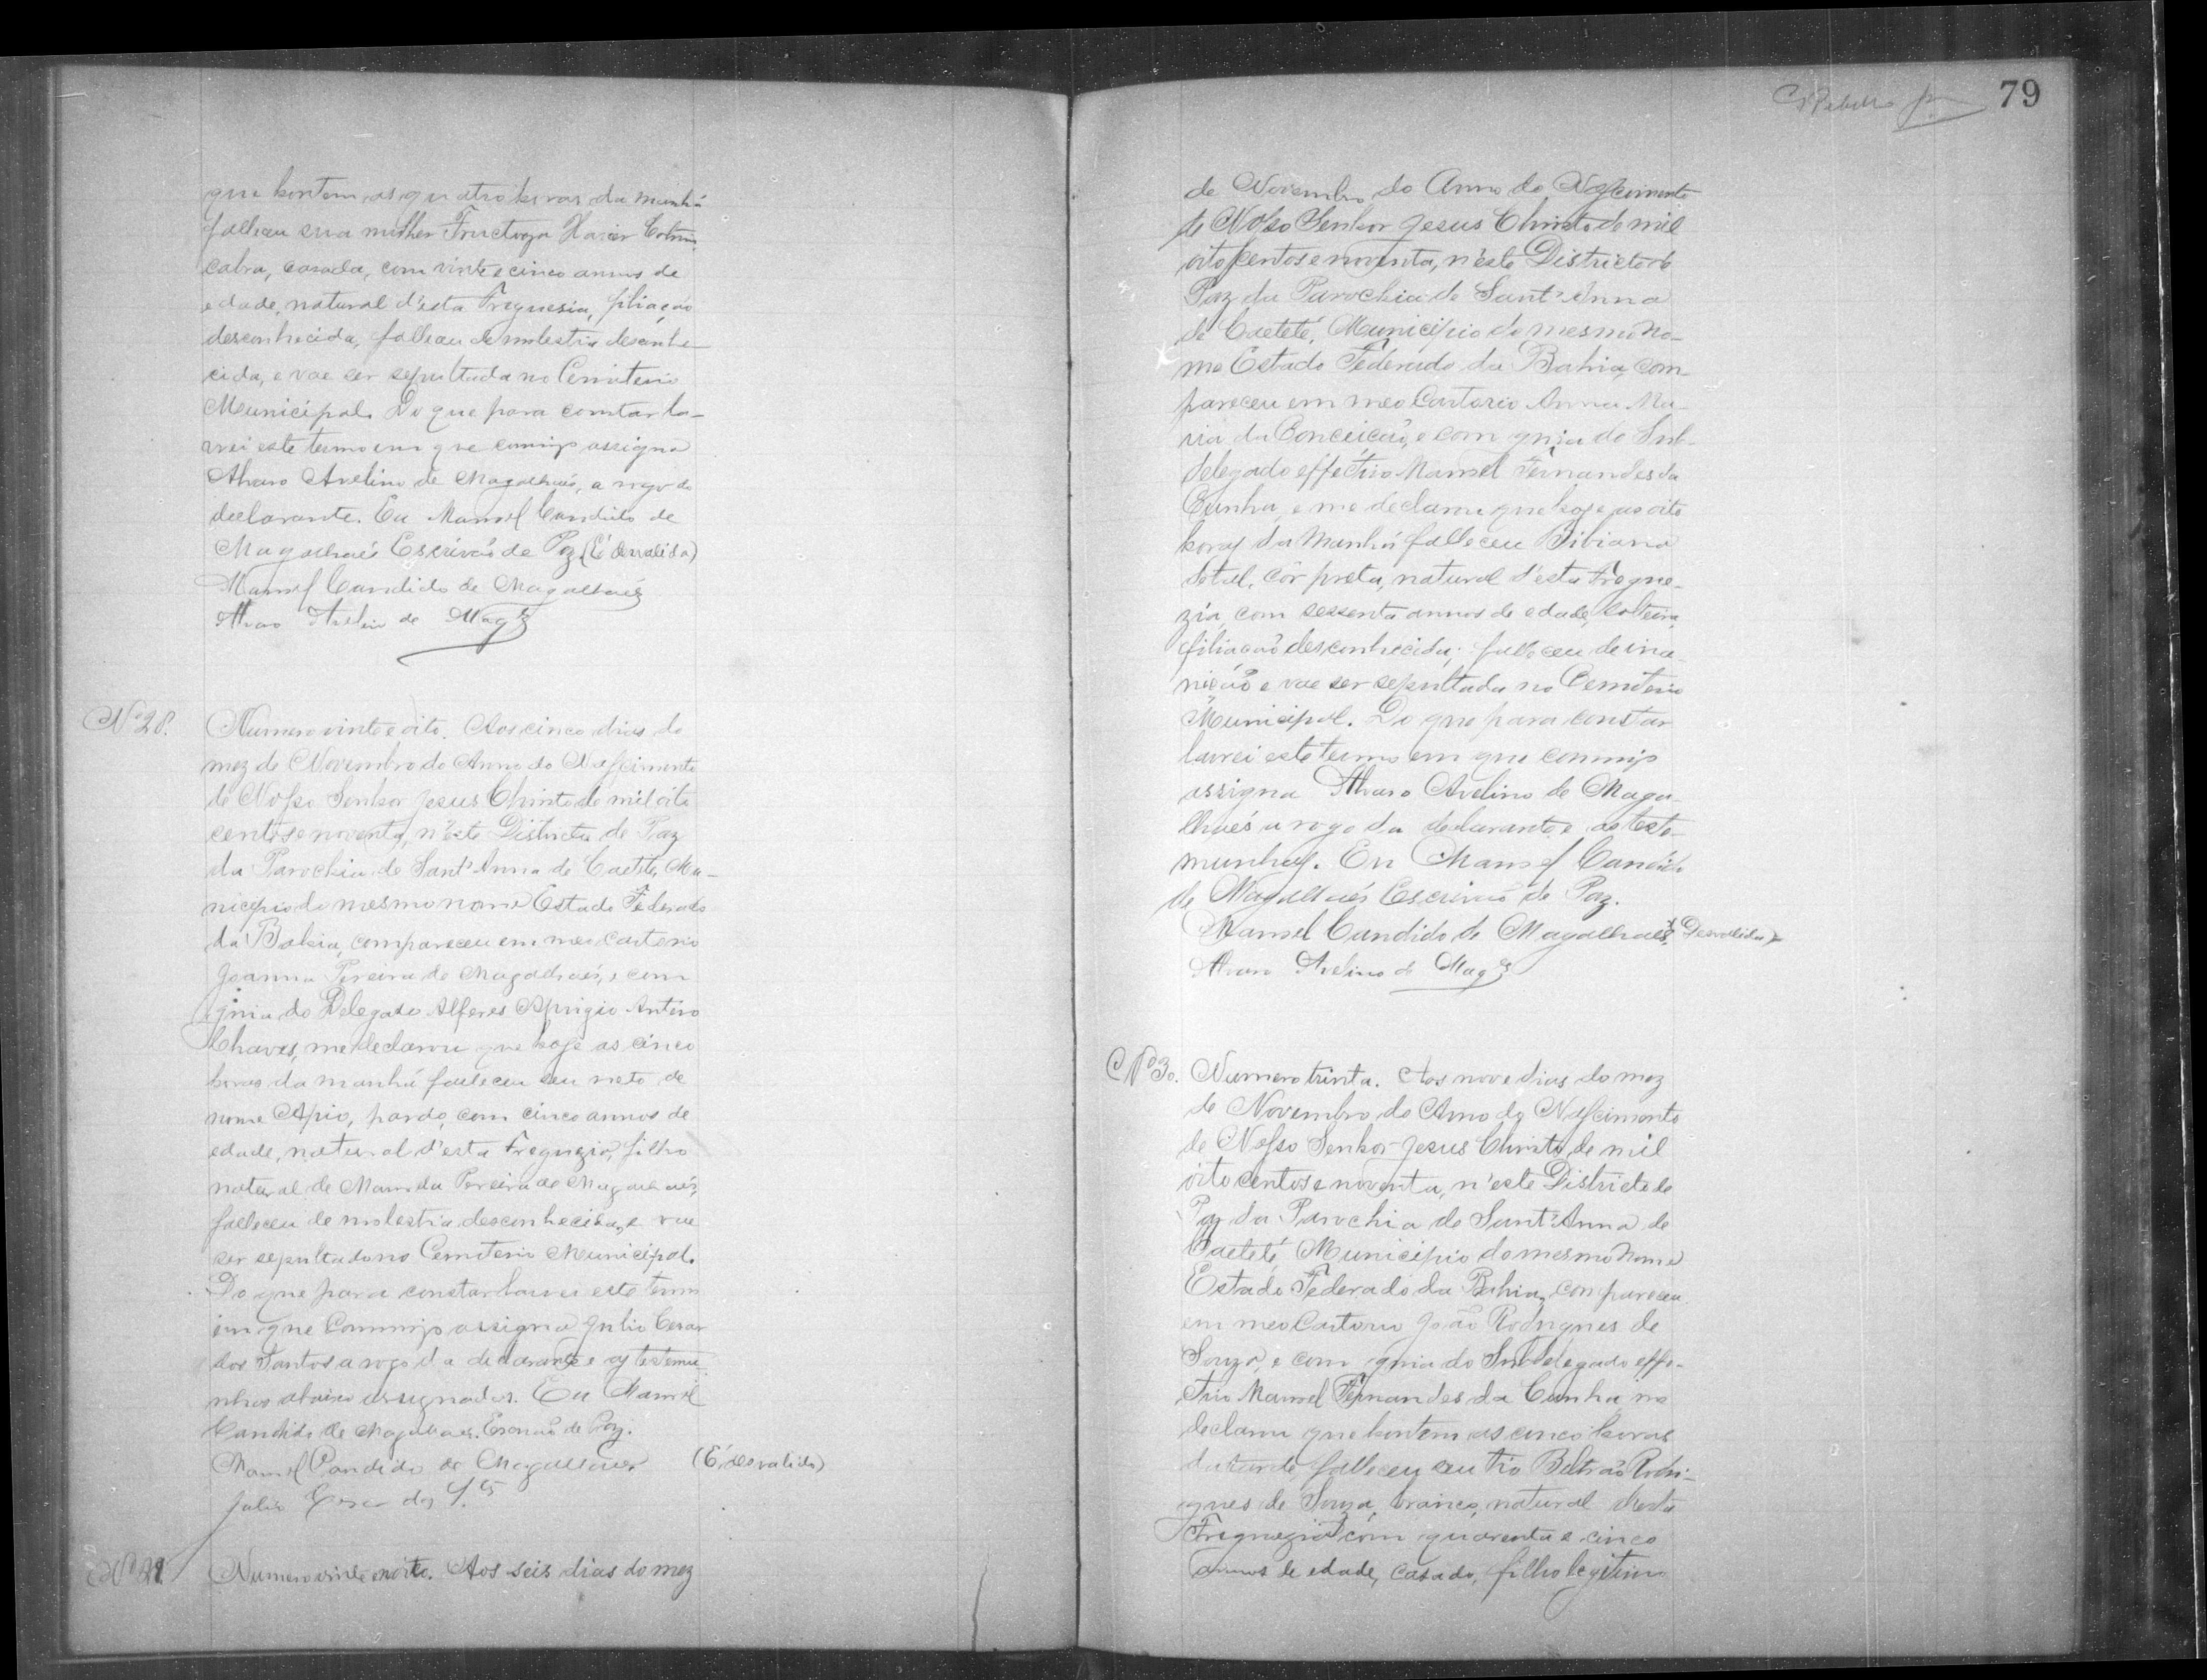 que hontem as quatro horas da manhã
falleceu sua mulher Fructuoza Xavier Cotrim,
cabra, casada, com vinte e cinco annos de
edade, natural d'esta Freguesia, filiação
desconhecida, falleceu de molestia desconhe-
cida, e vae ser sepultada no Cemiterio
Municipal. Do que para constar la-
vrei este termo em que commigo assigna
Alvaro Avelino de Magalhaés, a rogo do
declarante. Eu Manoel Candido de
Magalhaés Escrivaõ de Paz (É desvalida)
Manoel Candido de Magalhaés
Alvaro Avelino de Mag.es
Nº 28.
Numero vinte e oito. Aos cinco dias do
mez de Novembro do Anno do Nascimento
de Nosso Senhor Jesus Christo de mil oito
centos e noventa, n'este Districto de Paz
da Parochia de Sant'Anna de Caeteté, Mu-
nicipio do mesmo nome Estado Federado
da Bahia, compareceu em meo Cartorio
Joanna Pereira de Magalhaés, e com
guia do Delegado Alferes Aprigio Antero
Chaves, me declarou que hoje as cinco
horas da manhã falleceu seu neto de
nome Apio, pardo, com cinco annos de
edade, natural d'esta Freguezia, filho
natural de Pereira de Magalhaés,
falleceu de molestia desconhecida, e vae
ser sepultado no Cemiterio Municipal.
Do que para constar lavrei este termo
em que commigo assigna Julio Cesar
dos Santos a rogo da declarante e as testemu-
nhas abaixo assignadas. Eu Manoel
Candido de Magalhaes. Escrivaõ de Paz.
Manoel Candido de Magalhaes (É desvalido)
Julio Cesar dos S.tos
Numero vinte e noite. Aos seis dias do mez
79
de Novembro do Anno do Nascimento
de Nosso Senhor Jesus Christo de mil
oito centos e noventa, n'este Districto de
Paz da Parochia de Sant'Anna
de Caeteté, Municipio do mesmo no-
me Estado Federado da Bahia, com-
pareceu em meo Cartorio Anna Ma-
ria da Conceicaõ, e com guia do Sub-
delegado effectivo Manoel Fernandes da
Cunha, e me declarou que hoje, as oito
horas da manhã falleceu Bibiana
de tal, côr preta, natural d'esta Fregue-
zia, com sessenta annos de edade, solteira,
filiacaõ desconhecida; falleceu de ina-
niçaõ e vae ser sepultada no Cemiterio
Municipal. Do que para constar
lavrei este termo em que commigo
assigna Alvaro Avelino de Maga-
lhaés a rogo da declarante e as teste-
munhas. Eu Manoel Candido
de Magalhaés Escrivaõ de Paz.
Manoel Candido de Magalhaés (Desvalida)
Alvaro Avelino de Mag.es
Nº 30.
Numero trinta. Aos nove dias do mez
de Novembro do Anno do Nascimento
de Nosso Senhor Jesus Christo de mil
oito centos e noventa, n'este Districto de
Paz da Parochia de Sant'Anna de
Caeteté, Municipio do mesmo nome
Estado Federado da Bahia, compareceu
em meo Cartorio João Rodrigues de
Souza, e com guia do Subdelegado effe-
ctivo Manoel Fernandes da Cunha, me
declarou que hontem as cinco horas
da tarde, falleceu seu tio Beltrão Rodri-
gues de Souza, branco, natural desta
Freguezia, com quarenta e cinco
annos de edade, casado, filho legitimo